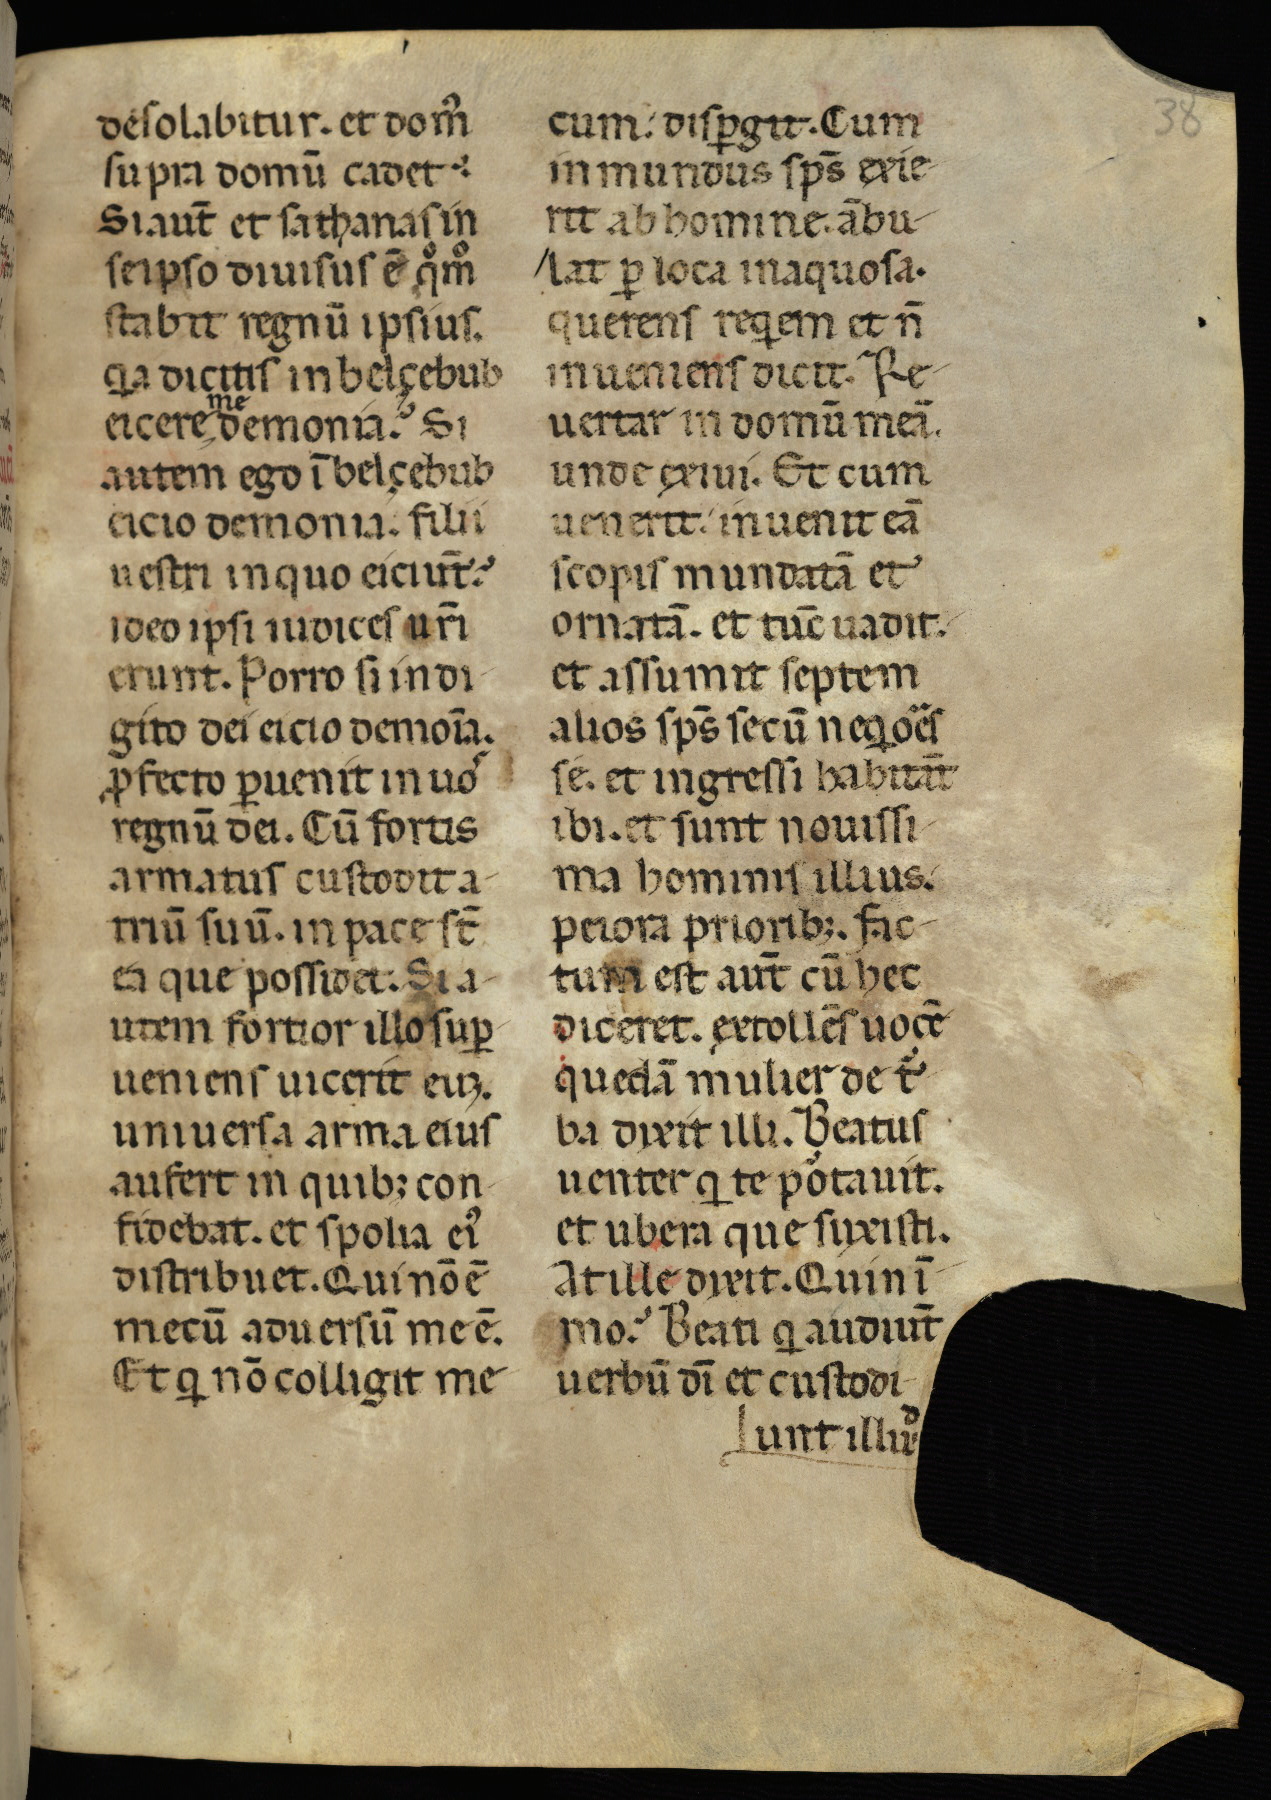 38
desolabitur. et domꝰ
supra domū cadet.
Si aut̄ et sathanas in
seipso diuisus ē. qͦmͦ
stabit regnū ipsius.
qꝛa dicitis in belçebub
eicere me demonia. Si
autem ego ī belçebub
eicio demonia. filii
uestri in quo eiciūt?
ideo ipsi iudices ur̄i
erunt. Porro si in di-
gito dei eicio demōia.
ꝓfecto ꝑuenit in uoˢ
regnū dei. Cū fortis
armatus custodit a-
triū suū. in pace st̄
ea que possidet. Si a-
utem fortior illo suꝑ-
ueniens uicerit euꝫ.
uniuersa arma eius
aufert in quibꝫ con-
fidebat. et spolia eiꝰ
distribuet. Qui nō ē
mecū aduersū me ē.
Et ꝗ nō colligit me-
cum. disꝑgit. Cum
inmundus sp̄s exie-
rit ab homine. ābu-
lat ꝑ loca inaquosa.
querens reꝗem et n̄
inueniens dicit. Re-
uertar in domū meā.
unde exiui. Et cum
uenerit. inuenit eā
scopis mundatā et
ornatā. et tūc uadit.
et assumit septem
alios sp̄s secū neꝗoēs
se. et ingressi habitāt
ibi. et sunt nouissi-
ma hominis illius.
peiora prioribꝫ. fac-
tum est aut̄ cū hec
diceret. extollēs uocē
quedā mulier de t̾-
ba dixit illi. Beatus
uenter ꝗ te portauit.
et ubera que suxisti.
At ille dixit. Quin ī-
mo. Beati ꝗ audiūt
uerbū dī et custodi-
unt illuᵈ